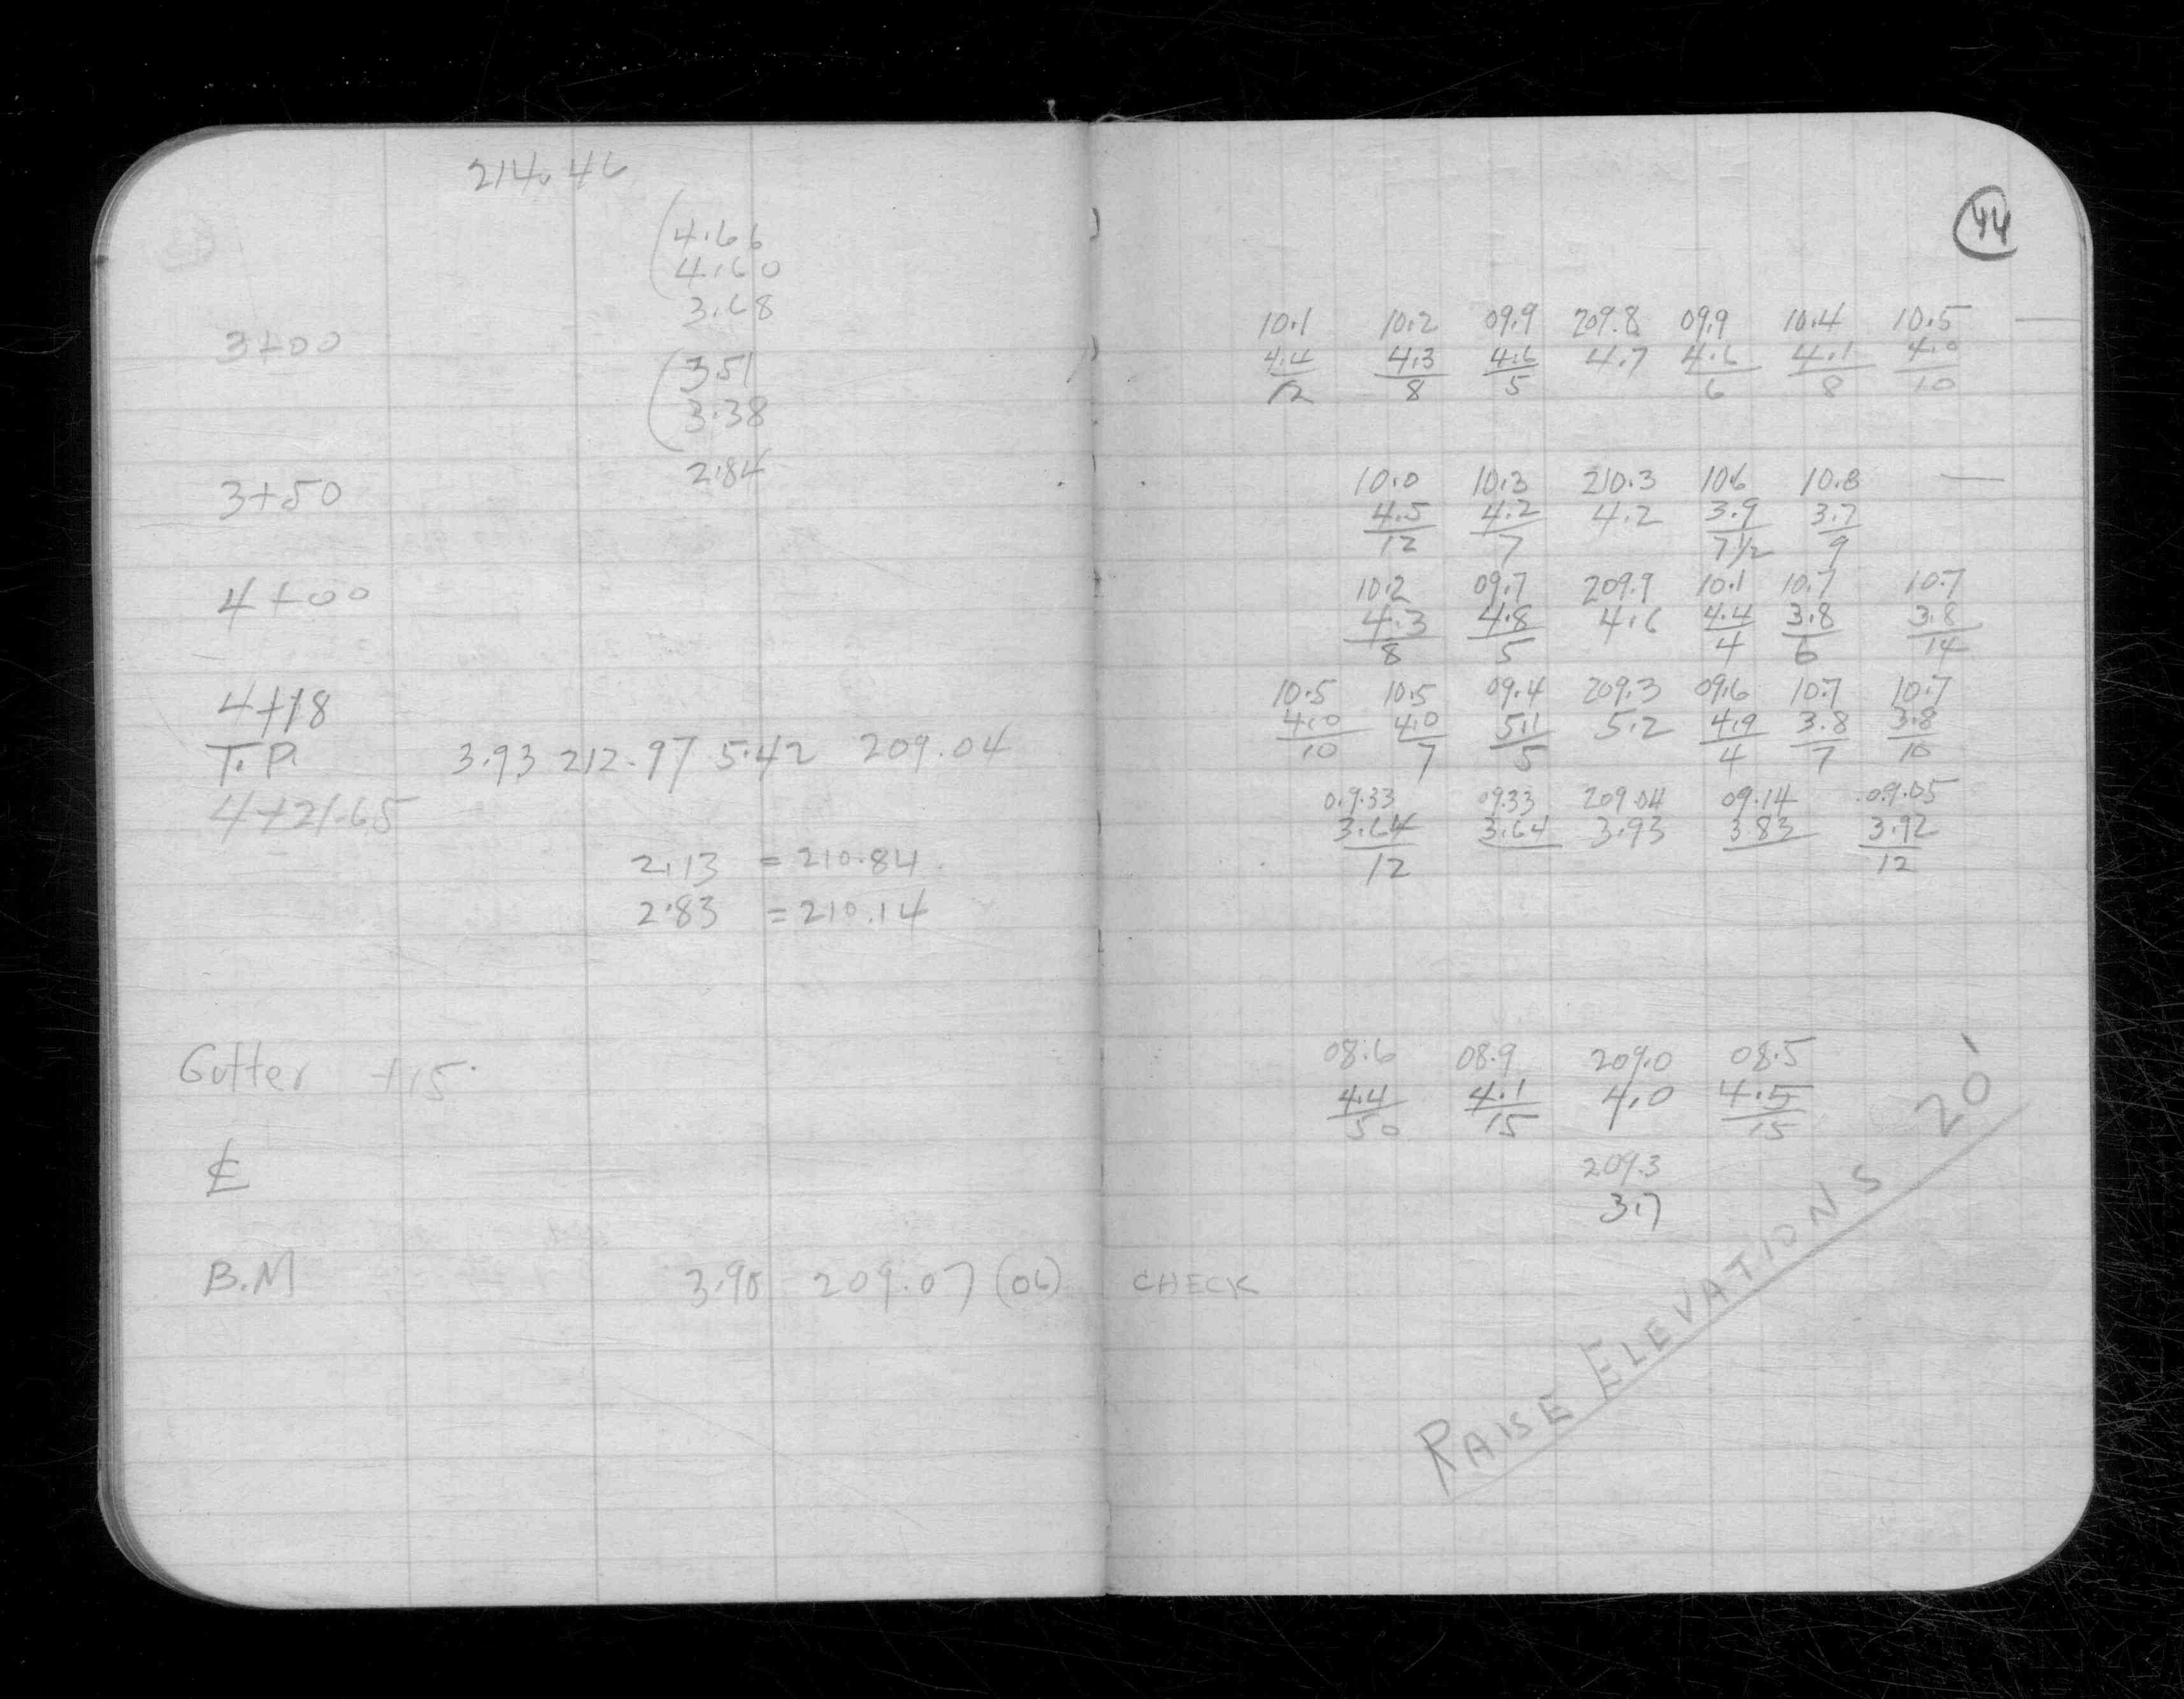 214.46
(4.66
4.60
3.68
3+00
(3.51
3.38
3+50 2.84
4+00
4+18
T.P. 3.93 212.97 5.42 209.04
4+21.65
2.13 = 210.84
2.83 = 210.14
Gutter +15
℄
B.M 3.90 209.07 (06) CHECK
44
10.1 10.2 09.9 209.8 09.9 10.4 10.5 —
4.4 4.3 4.6 4.7 4.6 4.1 4.0
12 8 5 6 8 10
10.0 10.3 210.3 10.6 10.8 —
4.5 4.2 4.2 3.9 3.7
12 7 7 1/2 9
10.2 09.7 209.9 10.1 10.7 10.7
4.3 4.8 4.6 4.4 3.8 3.8
8 5 4 6 14
10.5 10.5 09.4 209.3 09.6 10.7 10.7
4.0 4.0 5.1 5.2 4.9 3.8 3.8
10 7 5 4 7 10
09.33 09.33 209.04 09.14 09.05
3.64 3.64 3.93 3.83 3.92
12 12
08.6 08.9 209.0 08.5
4.4 4.1 4.0 4.5
50 15 15
209.3
3.7
RAISE ELEVATIONS 20'